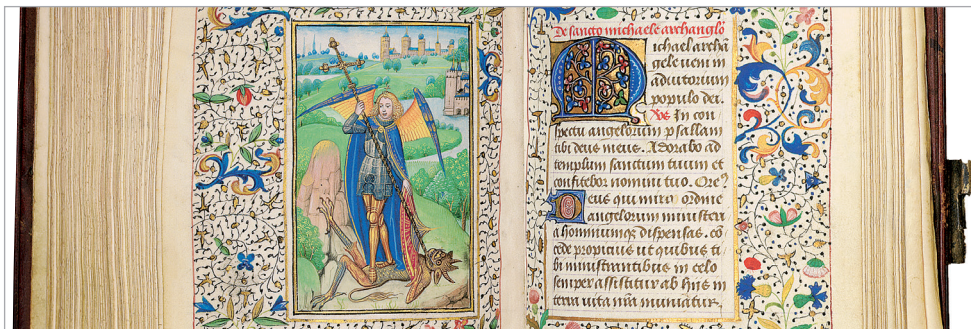 De sancto michaele archanglo
Michael archā
gele veni in
adiutorium
populo dei.
In con
spectu angelorum psallam
tibi deus meus. Adorabo ad
templum sanctum tuum et
confitebor nomini tuo.
Deus qui miro ordine
angelorum ministeri
a hominumq; dispensas. cō
cede propicius ut quibus ti
bi ministrantibus in celo
semper assistitur ab hiis in
terra vita nr̄a muniatur.